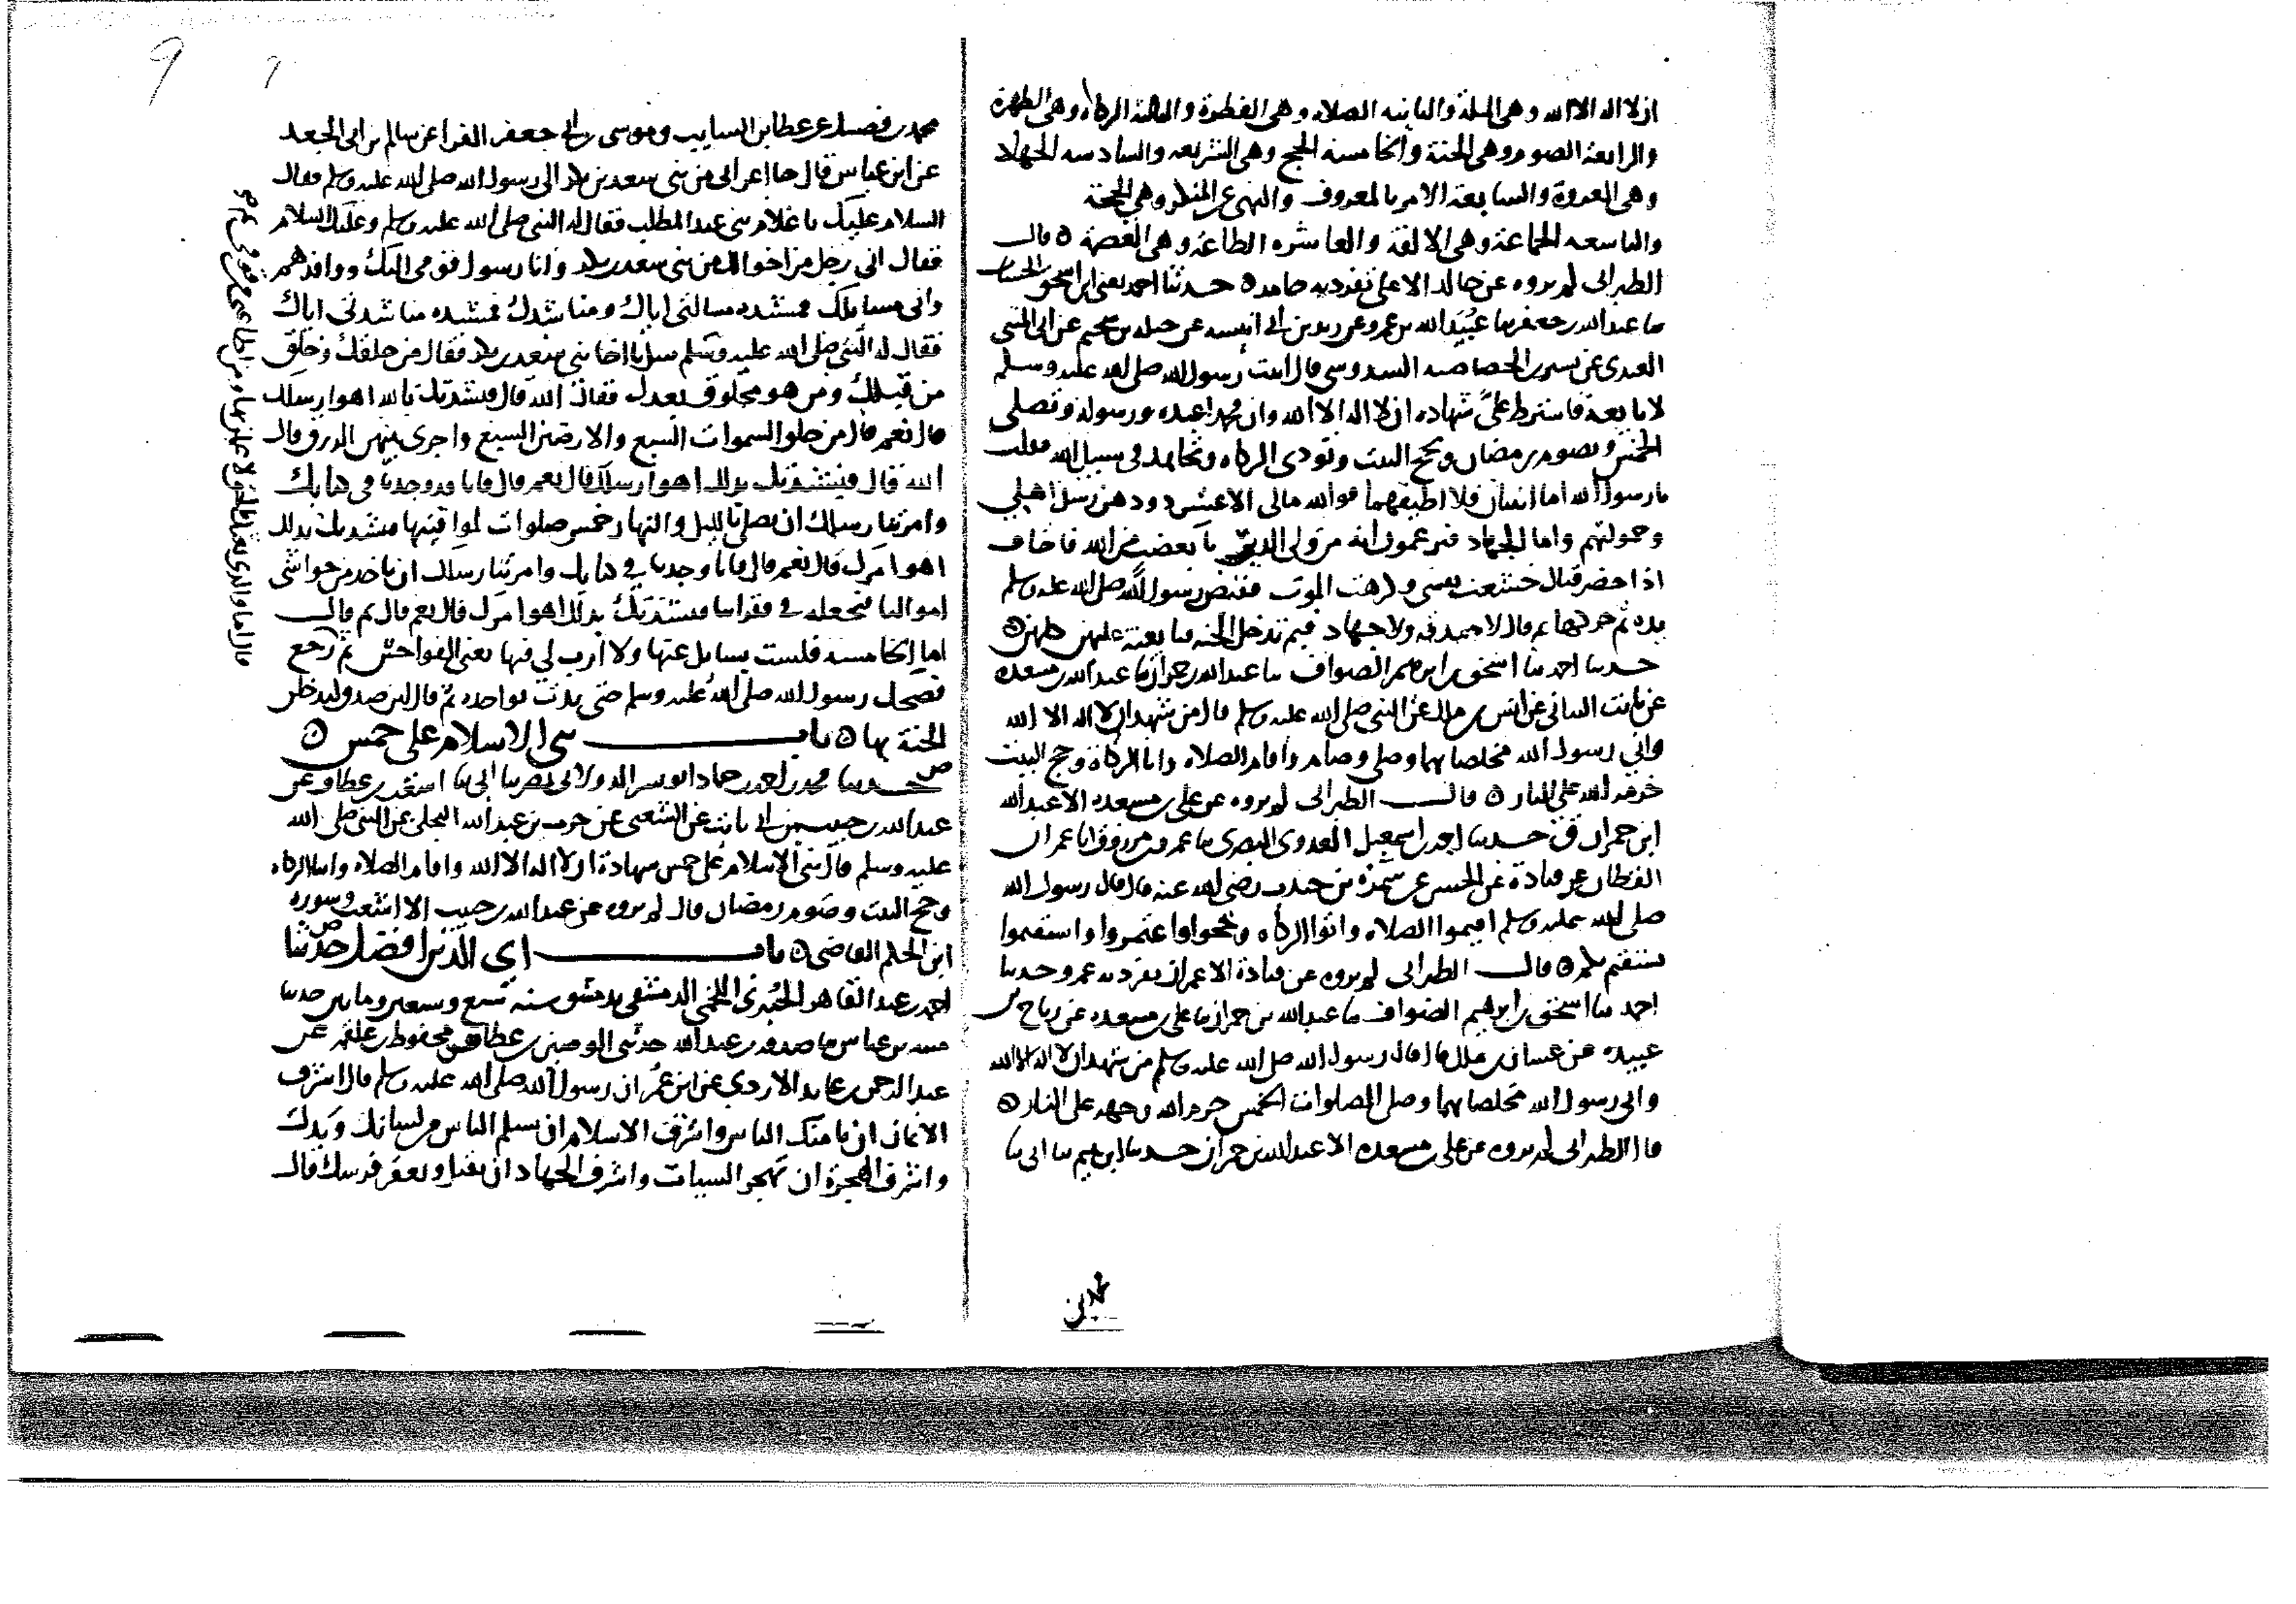 ان لا اله الا الله وهي الملة والثانيه الصلاه وهي الفطرة والثالثة الزكاه وهي الطهرة
والرابعة الصوم وهي الجنة والخامسة الحج وهي الشريعه والسادسه الجهاد
وهي العروة والسابعة الامر بالمعروف والنهي عن المنكر وهي الحجة
والتاسعه الجماعة وهي الالفة والعاشره الطاعة وهي العصمة ه قال
الطبراني لم يروه عن خالد الا علي تفرد به حامد ه حدثنا احمد يعني ابن اسحق الخشاب
ما عبدالله بن جعفر ما عبيدالله بن عمرو عن زيد بن ابي انيسه عن جبله بن سحيم عن ابي المثنى
العبدي عن بشير بن الخصاصيه السدوسي قال اتيت رسول الله صلى الله عليه وسلم
لابايعة فاشترط علي شهاده ان لا اله الا الله وان محمدا عبده ورسوله وتصلي
الخمس وتصوم رمضان وتحج البيت وتودي الزكاه وتجاهد في سبيل الله فقلت
يا رسول الله اما اثنتان فلا اطيقهما فوالله مالي الا عشر ذود هن رسل اهلي
وحمولتهم واما الجهاد فيزعمون انه من ولى الدبر باء بغضب من الله فاخاف
اذا حضر قتال خشعت نفسي وكرهت الموت فقبض رسول الله صلى الله عليه وسلم
يده ثم حركها ثم قال لا صدقه ولا جهاد فبم تدخل الجنه فبايعته عليهن كلهن ه
حدثنا احمد ما اسحق بن ابراهيم الصواف ما عبدالله بن حمران ما علي بن مسعده
عن ثابت البناني عن انس بن مالك عن النبي صلى الله عليه وسلم قال من شهد ان لا اله الا الله
واني رسول الله مخلصا بهما وصلى وصام واقام الصلاه واتا الزكاة وحج البيت
حرمه الله على النار ه قال الطبراني لم يروه عن علي بن مسعده الا عبدالله
ابن حمران حدثنا احمد بن اسمعيل العدوي البصري ما عمرو بن مرزوق انا عمران
القطان عن قتادة عن الحسن عن سمرة بن جندب رضي الله عنه قال قال رسول الله
صلى الله عليه وسلم اقيموا الصلاه واتوا الزكاه وحجوا واعتمروا واستقيموا
يستقم بكم ه قال الطبراني لم يروه عن قتادة الا عمران تفرد به عمرو حدثنا
احمد ما اسحق بن ابراهيم الصواف ما عبدالله بن حمران ما علي بن مسعده عن رياح بن
عبيده عن غسان بن مالك قال قال رسول الله صلى الله عليه وسلم من شهد ان لا اله الا الله
واني رسول الله مخلصا بهما وصلى الصلوات الخمس حرم الله وجهه على النار ه
قال الطبراني لم يروه عن علي بن مسعده الا عبدالله بن حمران حدثنا ابراهيم ما ابي ما
محمد بن
9 9
محمد بن فضيل عن عطا بن السايب وموسى بن ابي جعفر الفرا عن سالم بن ابي الجعد
عن ابن عباس قال جا اعرابي من بني سعد بن بكر الى رسول الله صلى الله عليه وسلم فقال
السلام عليك يا غلام بني عبد المطلب فقال له النبي صلى الله عليه وسلم وعليك السلام
فقال اني رجل من اخوالك من بني سعد بن بكر وانا رسول قومي اليك ووافدهم
واني مسايلك فمشتده مسالتي اياك ومناشدك فمشتده مناشدتي اياك
فقال له النبي صلى الله عليه وسلم سل يا اخا بني سعد بن بكر فقال من خلقك وخلق
من قبلك ومن هو مخلوق بعدك فقال الله قال فنشدتك بالله اهو ارسلك
قال نعم قال من خلق السموات السبع والارضين السبع واجرى بينهن الرزق قال
الله قال فنشدتك بذلك اهو ارسلك قال نعم قال فانا قد وجدنا في كتابك
وامرتنا رسلك ان نصلي بالليل والنهار خمس صلوات لمواقيتها فنشدتك بذلك
اهو امرك قال نعم قال فانا وجدنا في كتابك وامرتنا رسلك ان ناخذ من حواشي
اموالنا فتجعله في فقراينا فنشدتك بذلك اهو امرك قال نعم قال ثم قال
اما الخامسة فلست بسايل عنها ولا ارب لي فيها يعني الفواحش ثم رجع
فضحك رسول الله صلى الله عليه وسلم حتى بدت نواجده ثم قال لئن صدق ليدخلن
الجنة بها ه باب بني الاسلام على خمس ه
حدثنا محمد بن احمد بن حماد ابو بشر الدولابي بمصر ما ابي ما اشعث بن عطاف عن
عبدالله بن حبيب بن ابي ثابت عن الشعبي عن جرير بن عبدالله البجلي عن النبي صلى الله
عليه وسلم قال بني الاسلام على خمس شهادة ان لا اله الا الله واقام الصلاه وايتا الزكاه
وحج البيت وصوم رمضان قال لم يروه عن عبدالله بن حبيب الا اشعث وسوره
ابن الحكم القاضي ه باب اي الدين افضل حدثنا
احمد بن عبد القاهر الخيبري اللخمي الدمشقي بدمشق سنه تسع وسبعين ومايتين حدثنا
منبه بن عثمان ما صدقه بن عبدالله حدثني الوضين بن عطا عن محفوظ بن علقمه عن
عبد الرحمن بن عايد الازدي عن ابن عمر ان رسول الله صلى الله عليه وسلم قال اشرف
الايمان ان يامنك الناس واشرف الاسلام ان يسلم الناس من لسانك ويدك
واشرف الهجرة ان تهجر السيات واشرف الجهاد ان تقتل وتعقر فرسك قال
قال اما والذي بعثك بالحق لاعملن بها ومن اطاعني من قومي